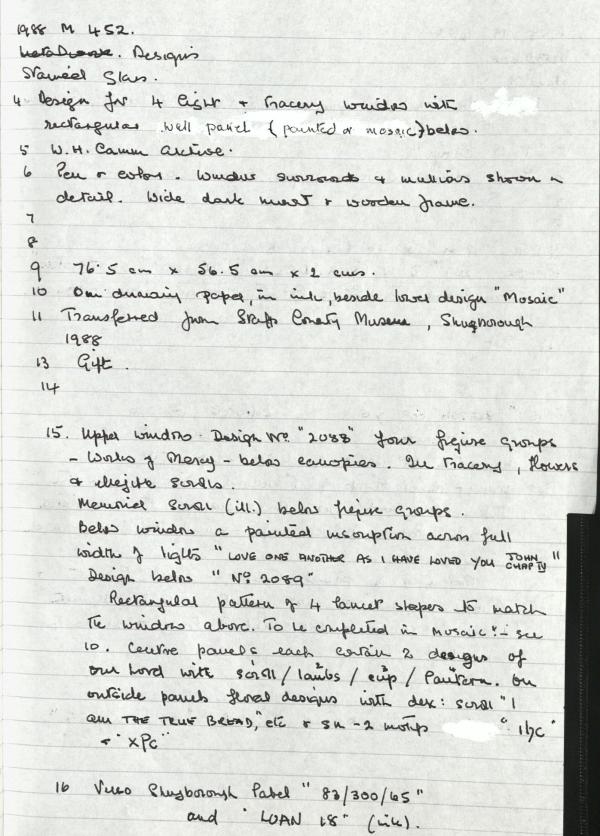 1988 M 452.
Designs
Stained Glass.
4 Design for 4 light + Tracery window with
rectangular wall panel (painted or mosaic) below.
5 W.H. Camm archive.
6 Pen & colour. Window surrounds & mullions shown in
detail. Wide dark mount & wooden frame.
7
8
9 76.5 cm x 56.5 cm x 2 cms.
10 On drawing paper, in ink, beside lower design "Mosaic"
11 Transferred from Staffs County Museum, Shugborough
1988
13 Gift.
14
15. Upper window Design No. "2088" Four figure groups
- Works of Mercy - below canopies. In Tracery, flowers
& scrolls.
Memorial Scroll (ill.) below figure groups.
Below window a painted inscription across full
width of lights "LOVE ONE ANOTHER AS I HAVE LOVED YOU JOHN CHAP IV"
Design below "No 2089"
Rectangular pattern of 4 lancet shapes to match
the window above. To be completed in Mosaic - see
10. Centre panels each contain 2 designs of
Our Lord with scroll / lambs / cup / Lantern. On
outside panels floral designs with dex: scroll "I
am THE TRUE BREAD," etc & sin - 2 motifs "ihc"
+ "XPC"
16 Verso Shugborough Label "83/300/65"
and "LOAN 18" (ink).